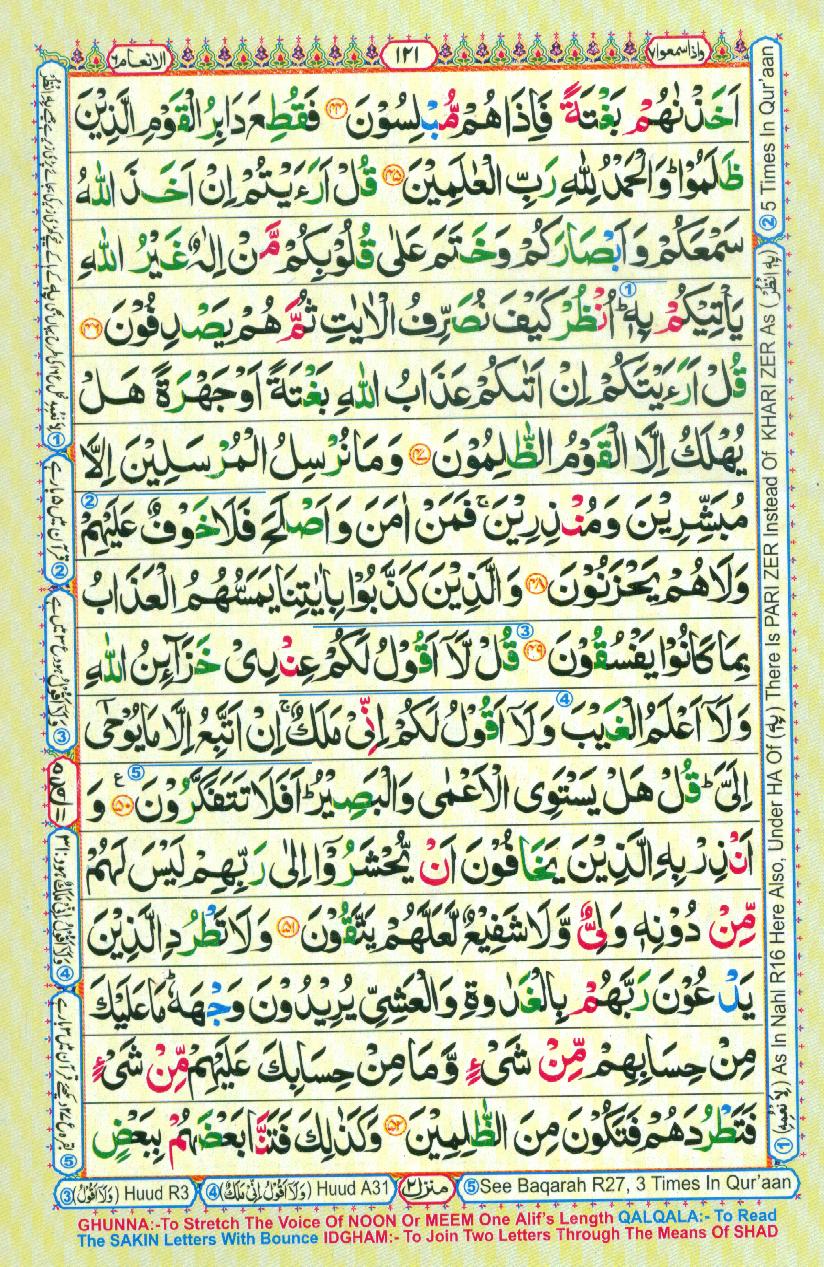 الانعام ٦
١٢١
واذاسمعوا ٧
اَخَذْنٰهُمْ بَغْتَةً فَاِذَا هُمْ مُّبْلِسُوْنَ ۴۴ فَقُطِعَ دَابِرُ الْقَوْمِ الَّذِيْنَ
ظَلَمُوْا ؕ وَالْحَمْدُ لِلّٰهِ رَبِّ الْعٰلَمِيْنَ ۴۵ قُلْ اَرَءَيْتُمْ اِنْ اَخَذَ اللّٰهُ
سَمْعَكُمْ وَاَبْصَارَكُمْ وَخَتَمَ عَلٰى قُلُوْبِكُمْ مَّنْ اِلٰهٌ غَيْرُ اللّٰهِ
يَاْتِيْكُمْ بِهٖ ؕ اُنْظُرْ كَيْفَ نُصَرِّفُ الْاٰيٰتِ ثُمَّ هُمْ يَصْدِفُوْنَ ۴۶
قُلْ اَرَءَيْتَكُمْ اِنْ اَتٰىكُمْ عَذَابُ اللّٰهِ بَغْتَةً اَوْ جَهْرَةً هَلْ
يُهْلَكُ اِلَّا الْقَوْمُ الظّٰلِمُوْنَ ۴۷ وَمَا نُرْسِلُ الْمُرْسَلِيْنَ اِلَّا
مُبَشِّرِيْنَ وَمُنْذِرِيْنَ ۚ فَمَنْ اٰمَنَ وَاَصْلَحَ فَلَا خَوْفٌ عَلَيْهِمْ
وَلَا هُمْ يَحْزَنُوْنَ ۴۸ وَالَّذِيْنَ كَذَّبُوْا بِاٰيٰتِنَا يَمَسُّهُمُ الْعَذَابُ
بِمَا كَانُوْا يَفْسُقُوْنَ ۴۹ قُلْ لَّاۤ اَقُوْلُ لَكُمْ عِنْدِىْ خَزَآئِنُ اللّٰهِ
وَلَاۤ اَعْلَمُ الْغَيْبَ وَلَاۤ اَقُوْلُ لَكُمْ اِنِّىْ مَلَكٌ ۚ اِنْ اَتَّبِعُ اِلَّا مَا يُوْحٰٓى
اِلَىَّ ؕ قُلْ هَلْ يَسْتَوِى الْاَعْمٰى وَالْبَصِيْرُ ؕ اَفَلَا تَتَفَكَّرُوْنَ ۵۰ ع وَ
اَنْذِرْ بِهِ الَّذِيْنَ يَخَافُوْنَ اَنْ يُّحْشَرُوْۤا اِلٰى رَبِّهِمْ لَيْسَ لَهُمْ
مِّنْ دُوْنِهٖ وَلِىٌّ وَّلَا شَفِيْعٌ لَّعَلَّهُمْ يَتَّقُوْنَ ۵۱ وَلَا تَطْرُدِ الَّذِيْنَ
يَدْعُوْنَ رَبَّهُمْ بِالْغَدٰوةِ وَالْعَشِىِّ يُرِيْدُوْنَ وَجْهَهٗ ؕ مَا عَلَيْكَ
مِنْ حِسَابِهِمْ مِّنْ شَىْءٍ وَّمَا مِنْ حِسَابِكَ عَلَيْهِمْ مِّنْ شَىْءٍ
فَتَطْرُدَهُمْ فَتَكُوْنَ مِنَ الظّٰلِمِيْنَ ۵۲ وَكَذٰلِكَ فَتَنَّا بَعْضَهُمْ بِبَعْضٍ
① As In Nahl R16 Here Also, Under HA Of (بِهٖ) There Is PARI ZER Instead Of KHARI ZER As (بِهِ انْظُرْ)
② 5 Times In Qur'aan
③ (وَلَا اَقُوْلُ) Huud R3
④ (وَلَا اَقُوْلُ اِنِّىْ مَلَكٌ) Huud A31
منزل ٢
⑤ See Baqarah R27, 3 Times In Qur'aan
② قرآن میں ۵ بارے
GHUNNA:-To Stretch The Voice Of NOON Or MEEM One Alif's Length QALQALA:- To Read
The SAKIN Letters With Bounce IDGHAM:- To Join Two Letters Through The Means Of SHAD